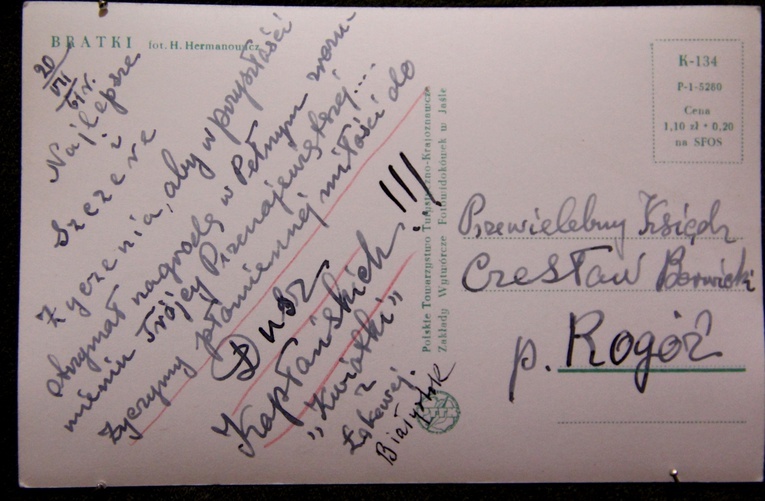 BRATKI fot. H. Hermanowicz
20/VII 61 r.
Najlepsze
i
Szczere
Życzenia, aby w przyszłości
otrzymał nagrodę w Pełnym zrozu-
mieniu Trójcy Przenajświętszej...
Życzymy płomiennej miłości do
Dusz
Kapłańskich !!!
„Kwiatki"
z
Łąkowej.
Białystok
Polskie Towarzystwo Turystyczno-Krajoznawcze
Zakłady Wytwórcze Fotowidokówek w Jaśle
K-134
P-1-5280
Cena
1,10 zł + 0,20
na SFOS
Przewielebny Ksiądz
Czesław
p. Rogóż